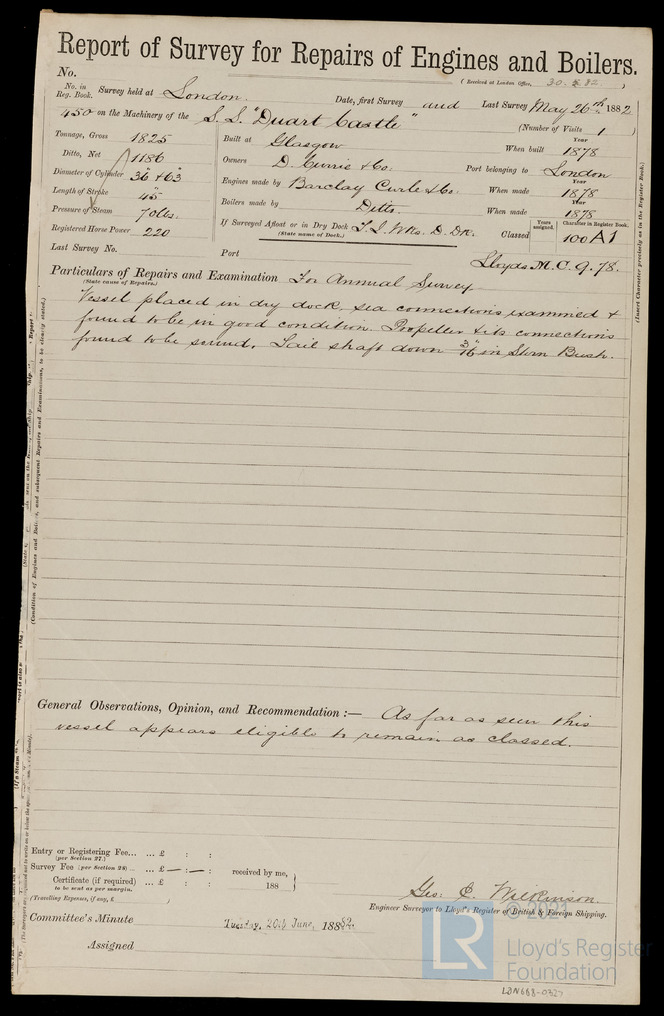 Report of Survey for Repairs of Engines and Boilers.
No.
(Received at London Office, 30.5.82)
No. in Reg. Book. Survey held at London. Date, first Survey and Last Survey May 26th 1882
450 on the Machinery of the S.S. "Duart Castle" (Number of Visits 1)
Tonnage, Gross 1825
Ditto, Net 1186
Diameter of Cylinder 36 & 63
Length of Stroke 45"
Pressure of Steam 70lbs.
Registered Horse Power 220
Built at Glasgow When built Year 1878
Owners D. Currie & Co. Port belonging to London
Engines made by Barclay Curle & Co. When made Year 1878
Boilers made by Ditto. When made Year 1878
If Surveyed Afloat or in Dry Dock T.I. Wks. D. Dk.
(State name of Dock.)
Classed Years assigned. Character in Register Book. 100 A1
Last Survey No. Port Lloyds M.C. 9.78.
Particulars of Repairs and Examination For Annual Survey
(State cause of Repairs.)
Vessel placed in dry dock. sea connections examined &
found to be in good condition. Propeller & its connections
found to be sound. Tail shaft down 3/16" in Stern Bush.
(Insert Character precisely as in the Register Book.)
(Condition of Engines and Boilers, and subsequent Repairs and Examinations, to be clearly stated.)
General Observations, Opinion, and Recommendation :— As far as seen this
vessel appears eligible to remain as classed.
Entry or Registering Fee... ... £ : :
(per Section 27.)
Survey Fee (per Section 28) ... £ — : — :
Certificate (if required) ... £ : :
to be sent as per margin.
(Travelling Expenses, if any, £ )
received by me,
188
Geo: C. Wilkinson.
Engineer Surveyor to Lloyd's Register of British & Foreign Shipping.
Committee's Minute Tuesday, 20th June, 1882
Assigned
© 2021
LR
Lloyd's Register
Foundation
LDN668-0327